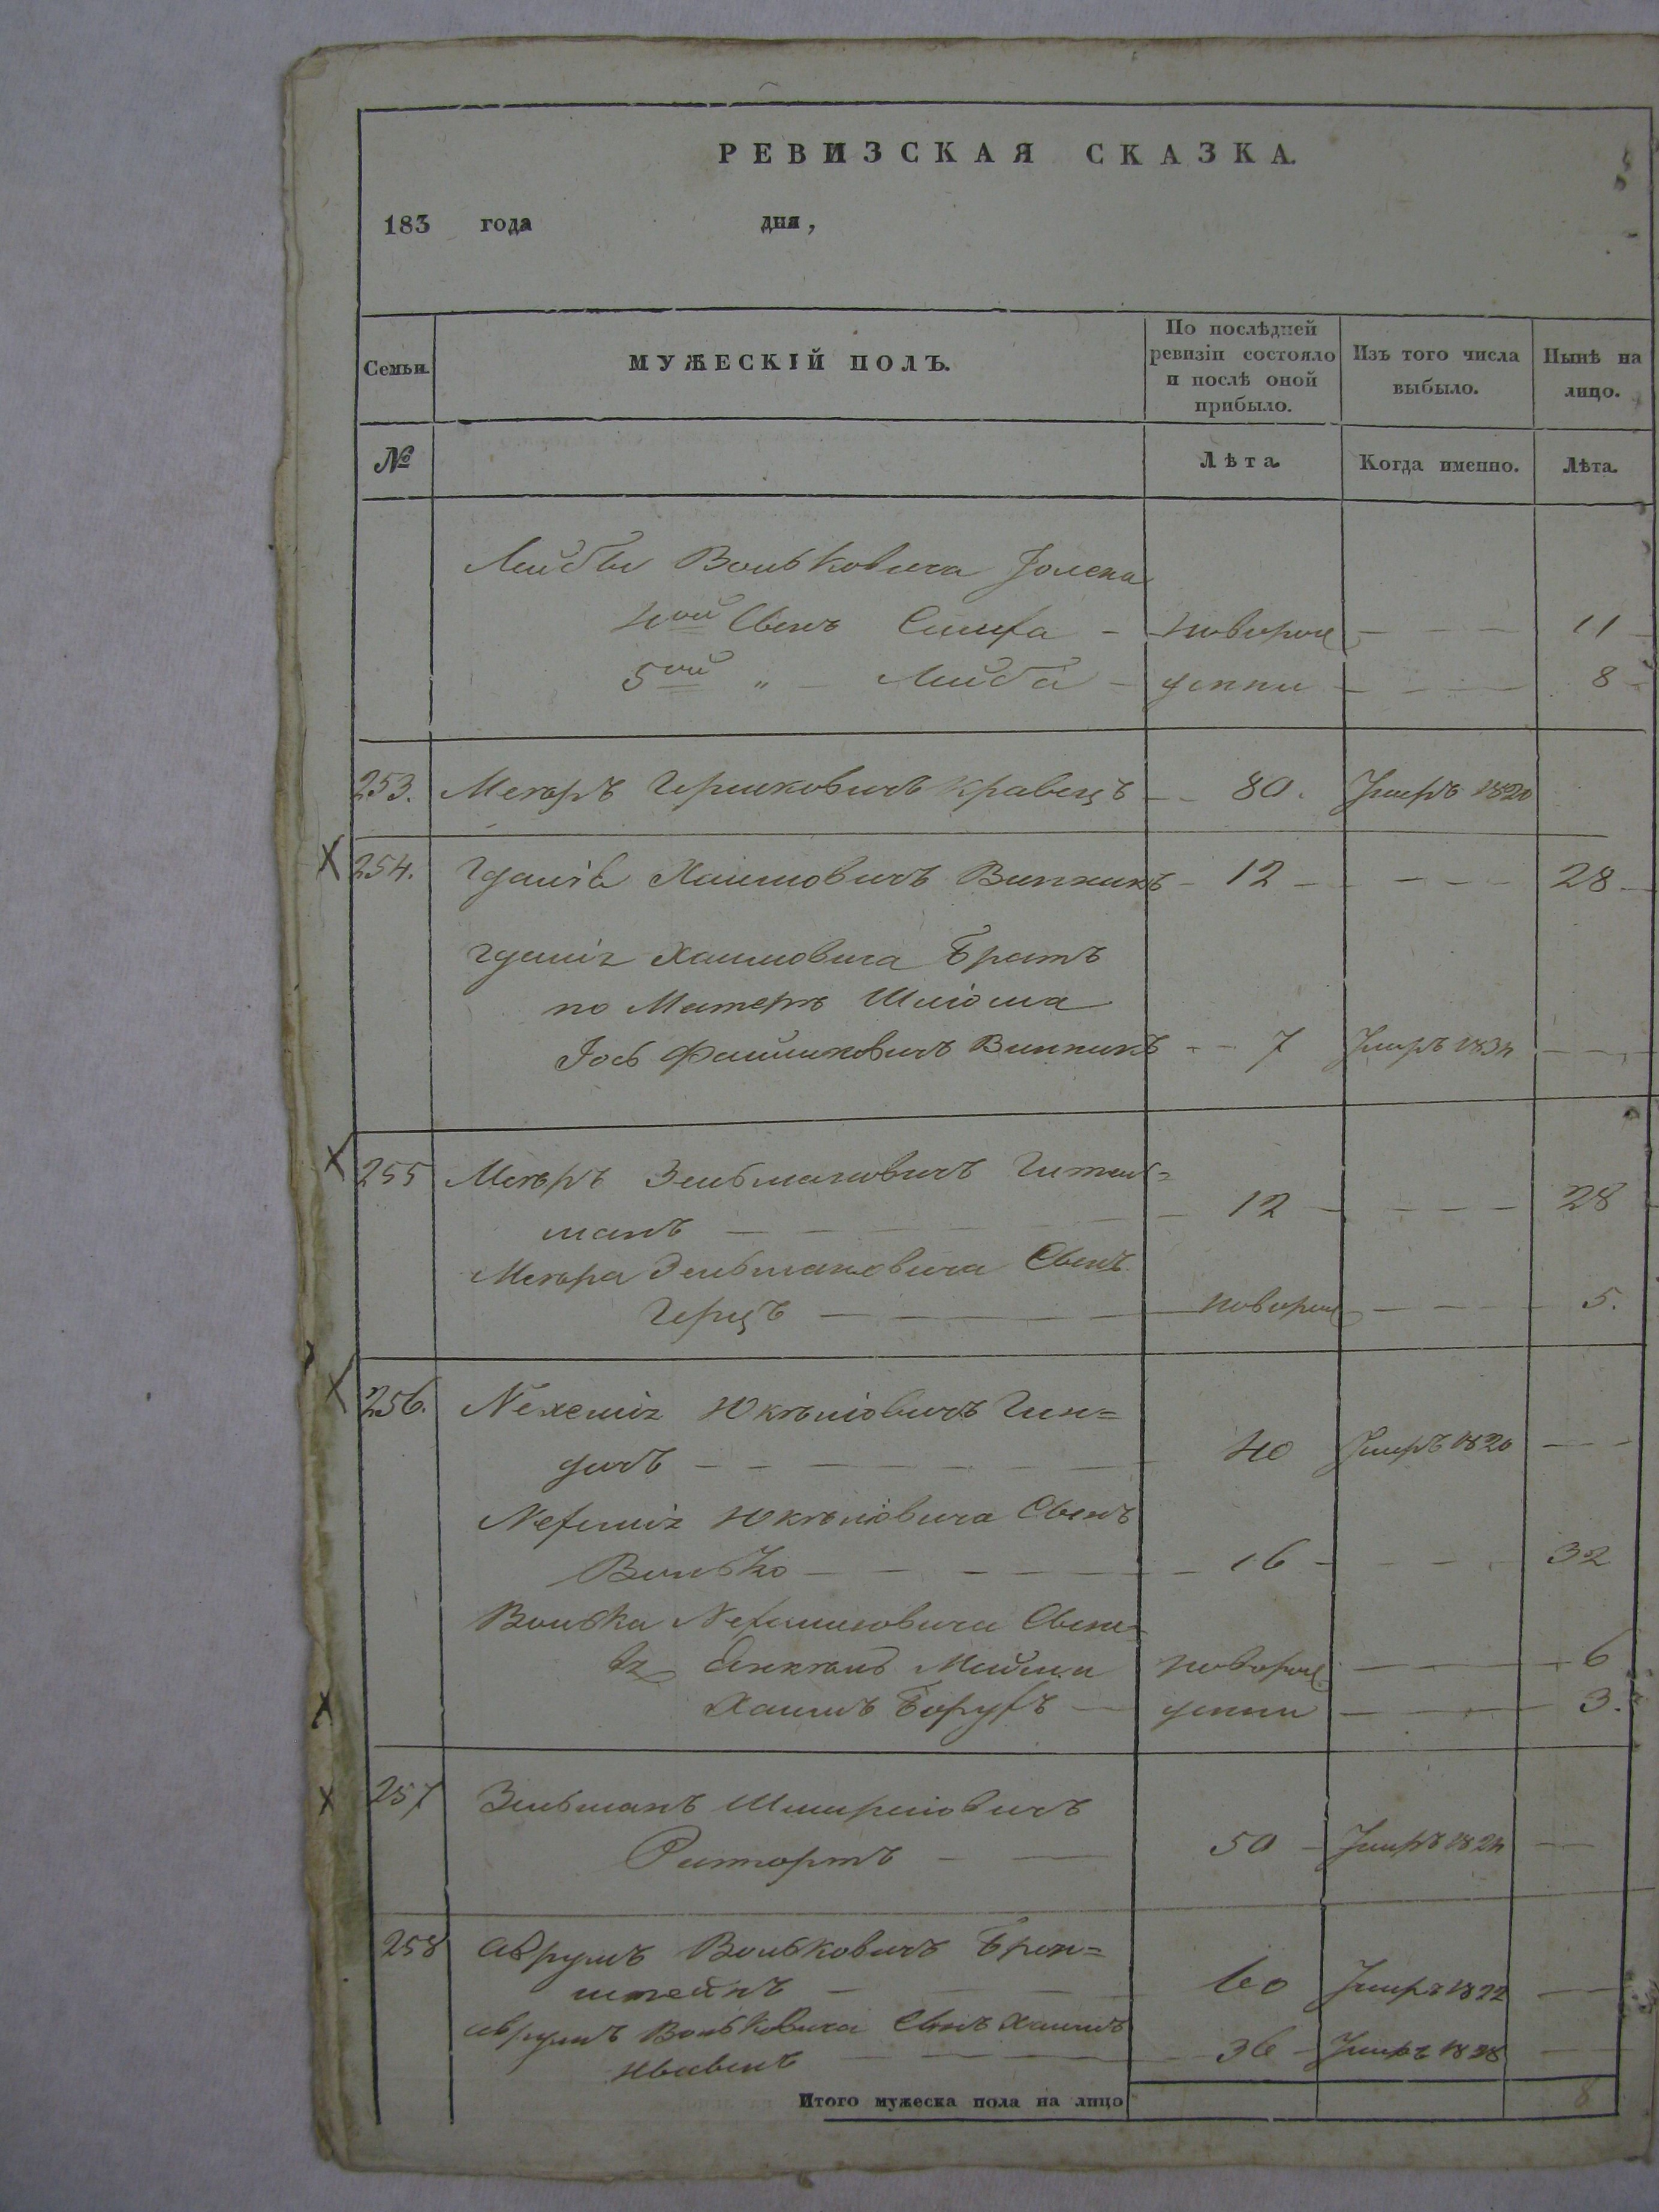 РЕВИЗСКАЯ СКАЗКА.
183 года дня,
Семьи. МУЖЕСКІЙ ПОЛЪ. По послѣдней ревизіи состояло и послѣ оной прибыло. Изъ того числа выбыло. Нынѣ на лицо.
№ Лѣта. Когда именно. Лѣта.
Лейбы Вольковича
4ой Сынъ Симха - новорож - - - 11
5ой " - Лейба - денни - - - 8
253. Мееръ Гершковичъ Кравецъ - - 80. Умеръ 1820
254. Хаимовичъ Винникъ - 12 - - - - 28
Хаимовича Братъ
по Матери Шліома
Іось Винникъ - - 7 Умеръ 1834 - - -
255 Мееръ Зельмановичъ Гитель=
манъ - - - 12 - - - - 28
Меера Зельмановича Сынъ
Герцъ - - - новорож - - - 5.
256. Нехемія Гин=
- - - 40 Умеръ 1820 - - -
Нехемія Сынъ
Волько - - - 16 - - - - 32
Волька Нехемиовича Сыно=
вя новорож - - - 6
Хаимъ Борухъ - денни - - - 3.
257 Зельманъ Шмерліовичъ
- - 50 - Умеръ 1824 - -
258 Аврумъ Вольковичъ Брон=
штейнъ - - - 60 Умеръ 1822 - -
Аврумъ Вольковича Сынъ Хаимъ
- - - 36 - Умеръ 1828 - -
Итого мужеска пола на лицо 8